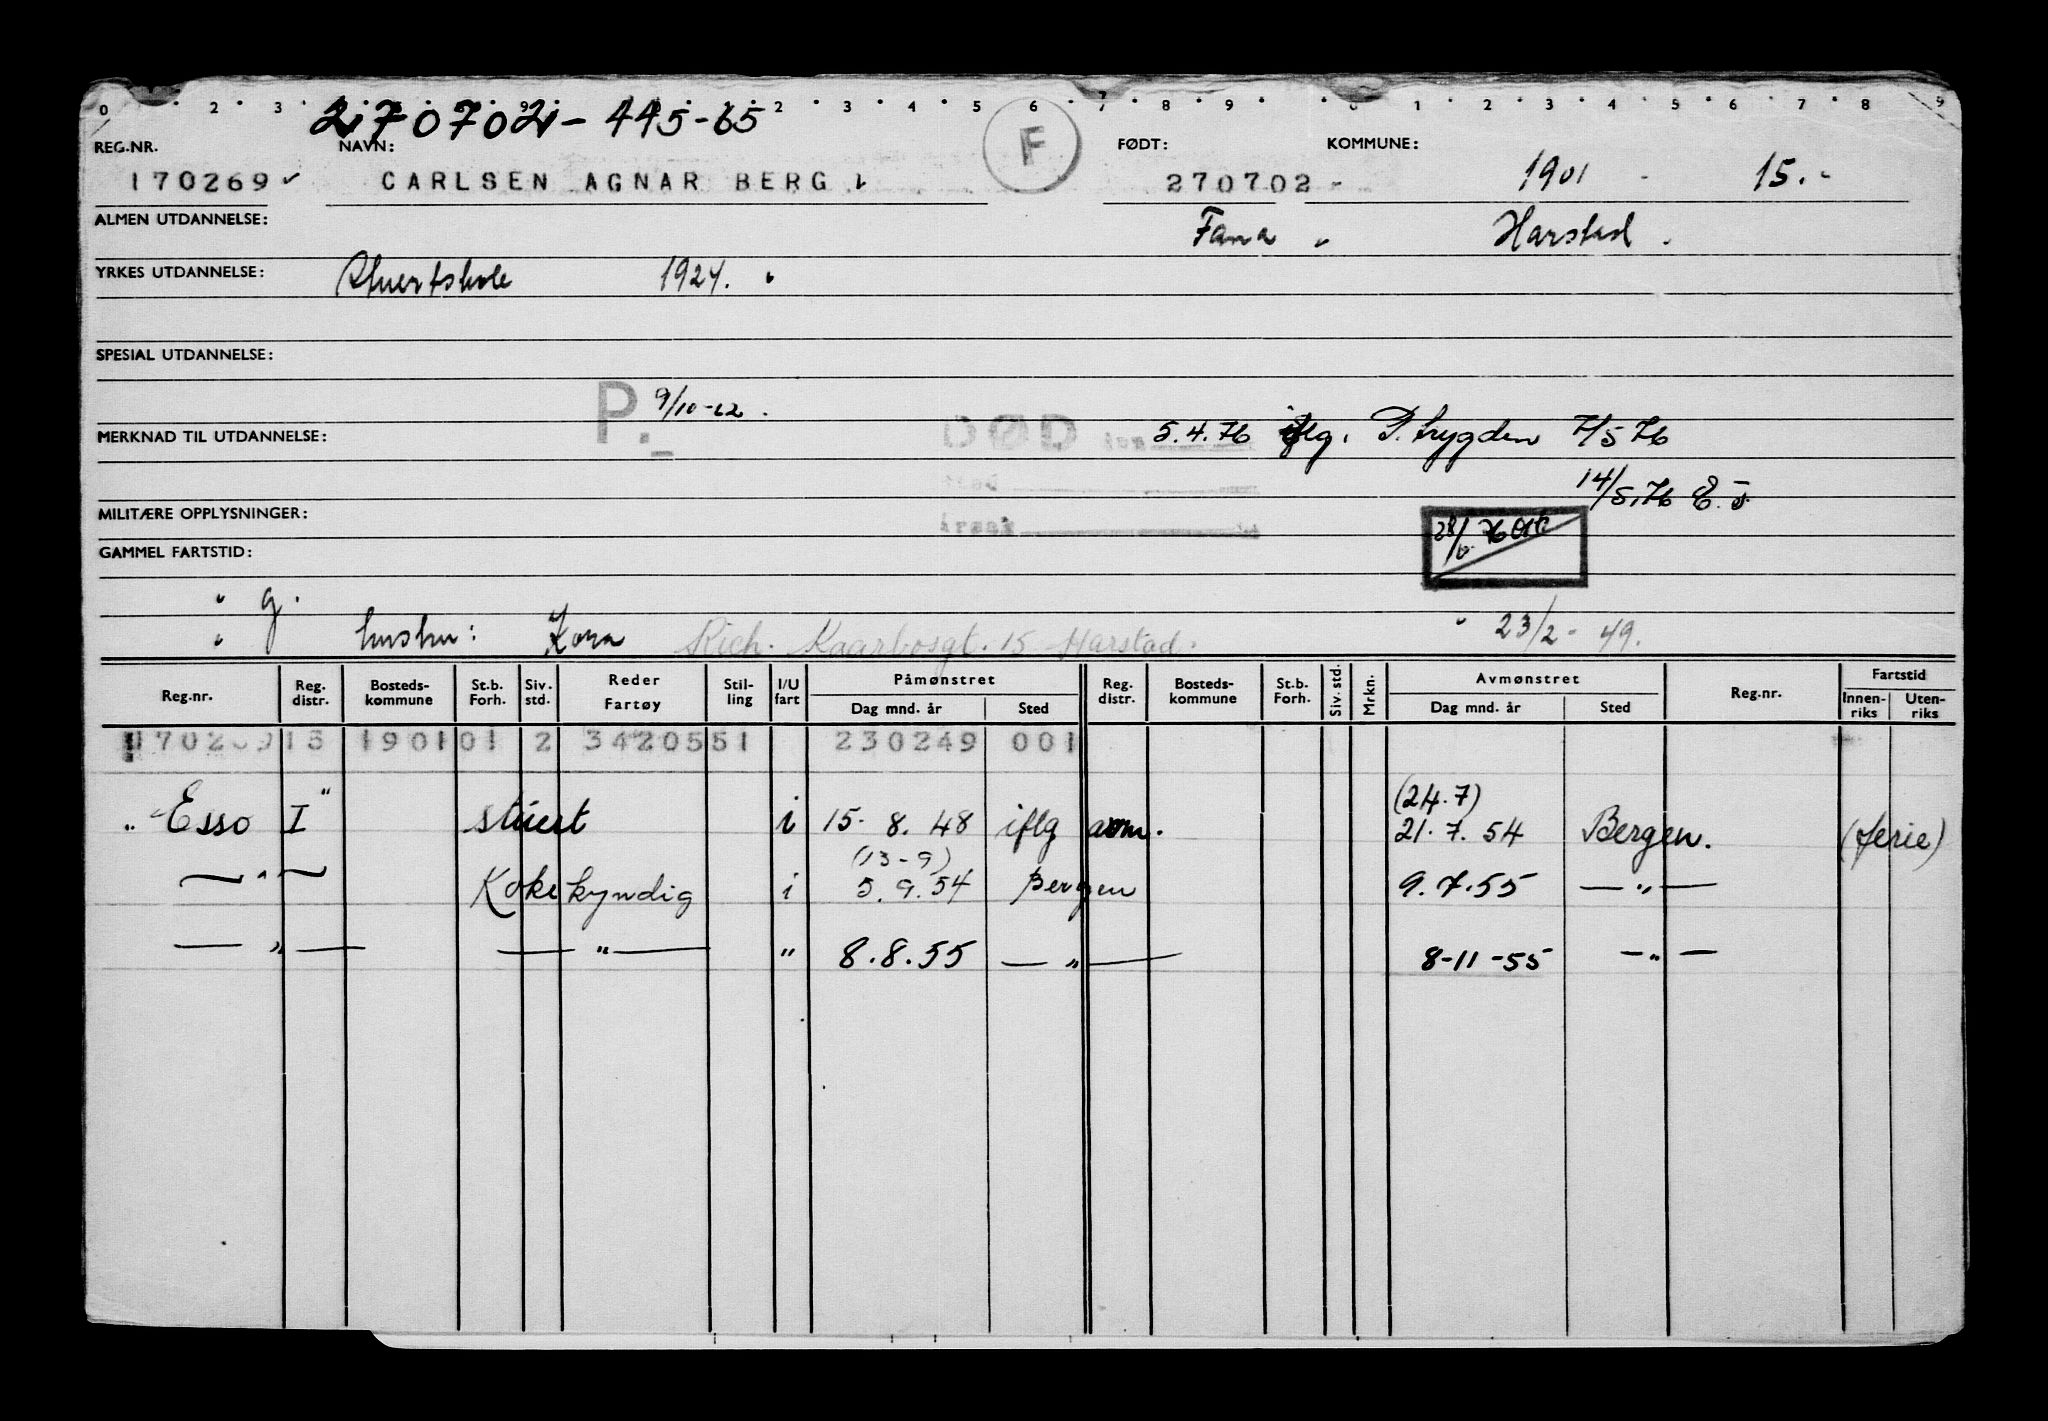 0 2 3 9 2 3 4 5 6 7 8 9 0 1 2 3 4 5 6 7 8 9
270702 - 445-65
REG.NR. NAVN: F FØDT: KOMMUNE:
170269 CARLSEN AGNAR BERG 270702 1901 15.
ALMEN UTDANNELSE: Fana Harstad
YRKES UTDANNELSE: Stuertskole 1924.
SPESIAL UTDANNELSE:
P. 9/10-62.
MERKNAD TIL UTDANNELSE: DØD den 5.4.76 iflg. P.trygden 7/5 76
sted 14/5.76
MILITÆRE OPPLYSNINGER: årsak 28/6. 76
GAMMEL FARTSTID:
" g.
" hustru: Kora Rich. Kaarbosgt. 15 Harstad. " 23/2 - 49.
Reg.nr. Reg. distr. Bosteds-kommune St.b. Forh. Siv. std. Reder Fartøy Stil-ling I/U fart Påmønstret Dag mnd. år Sted Reg. distr. Bosteds-kommune St.b. Forh. Siv. std. Mrkn. Avmønstret Dag mnd. år Sted Reg.nr. Fartstid Innen-riks Uten-riks
170269 15 1901 01 2 3420551 230249 001
(24.7)
"Esso I" stuert i 15. 8. 48 iflg avm. 21. 7. 54 Bergen. (ferie)
(13-9)
— " — Kokekyndig i 5. 9. 54 Bergen 9. 7. 55 — " —
— " — — " — " 8. 8. 55 — " — 8-11-55 — " —